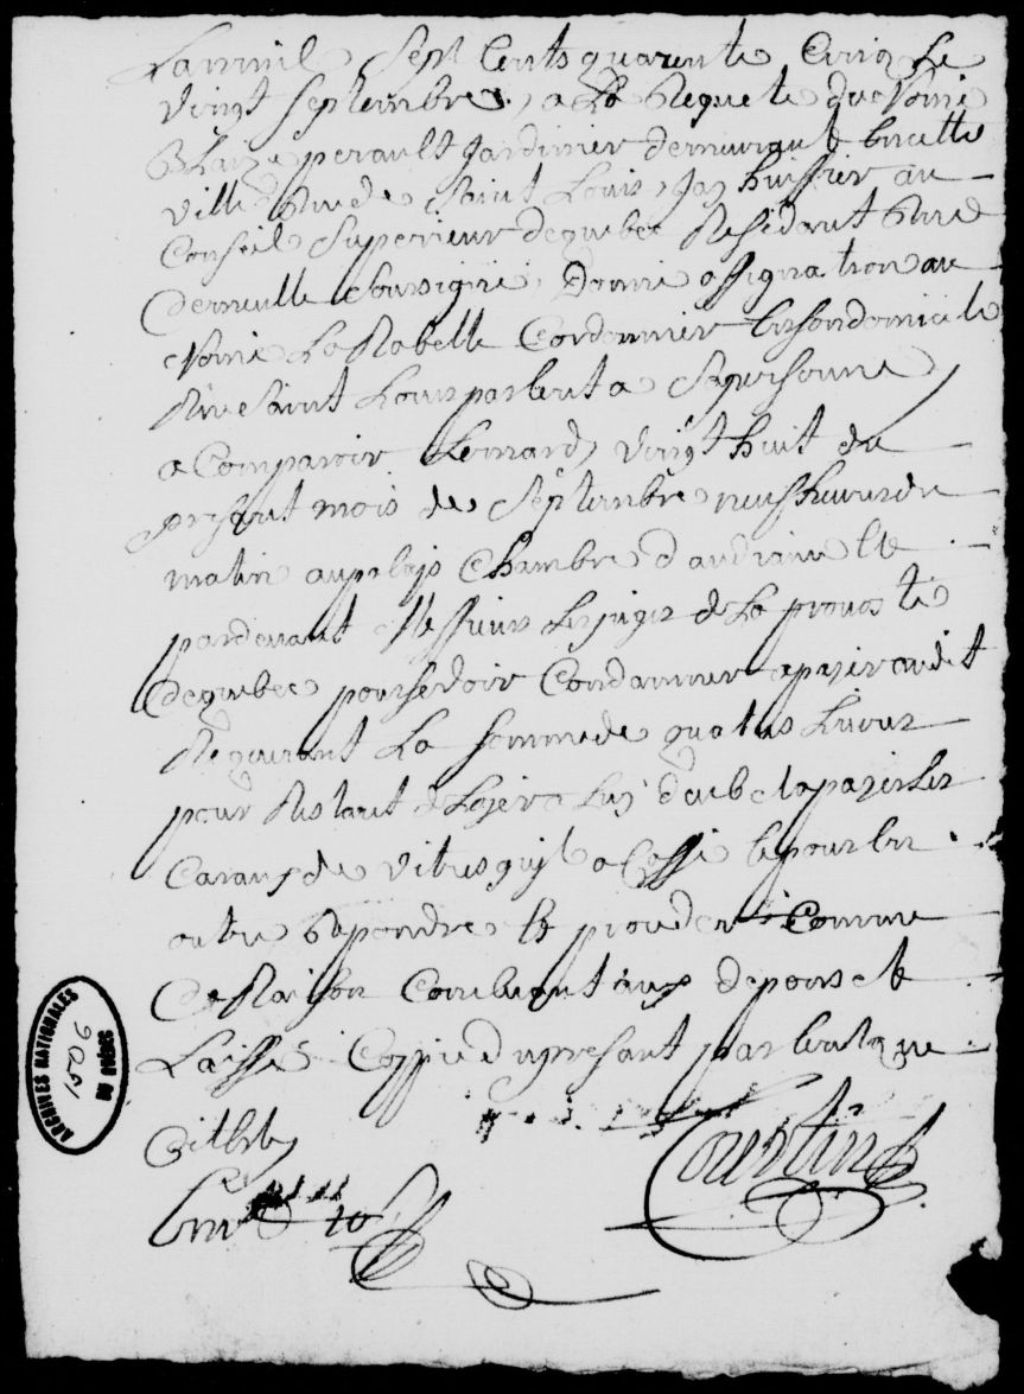 Lanmil Sept Cents quarente Cinq Le
vingt septembre a La Requete du nomé
Blaize perault Jardinier demeurant en cette
ville Rue de Saint Louis Jay huissier au
Conseil Superieur de quebec Residant Rue
demeulle Soussigné, Donné assignation au
nomé La Rabelle Cordonnier en son domicile
Rue Saint Louis parlent a Sa personne
a Comparoir Lemard vingt huit du
present mois de Septembre neuf heures du
matin au palais Chambre d'audiance Et
pardevant Messieurs Les juges de La prevosté
de quebec pour se voir Condamner a payer audit
Requerant La somme de quatres Livres
pour Restant de Loyer a Luy deub et a payer Les
Caraux de vitres quil a Cassé Et pour En
outre Repondre Et proceder Comme
De Raison Concluant aux depens et
Laissé Coppie du presant parlent que
Dit Est
Courtin
10
ARCHIVES NATIONALES
DU QUÉBEC